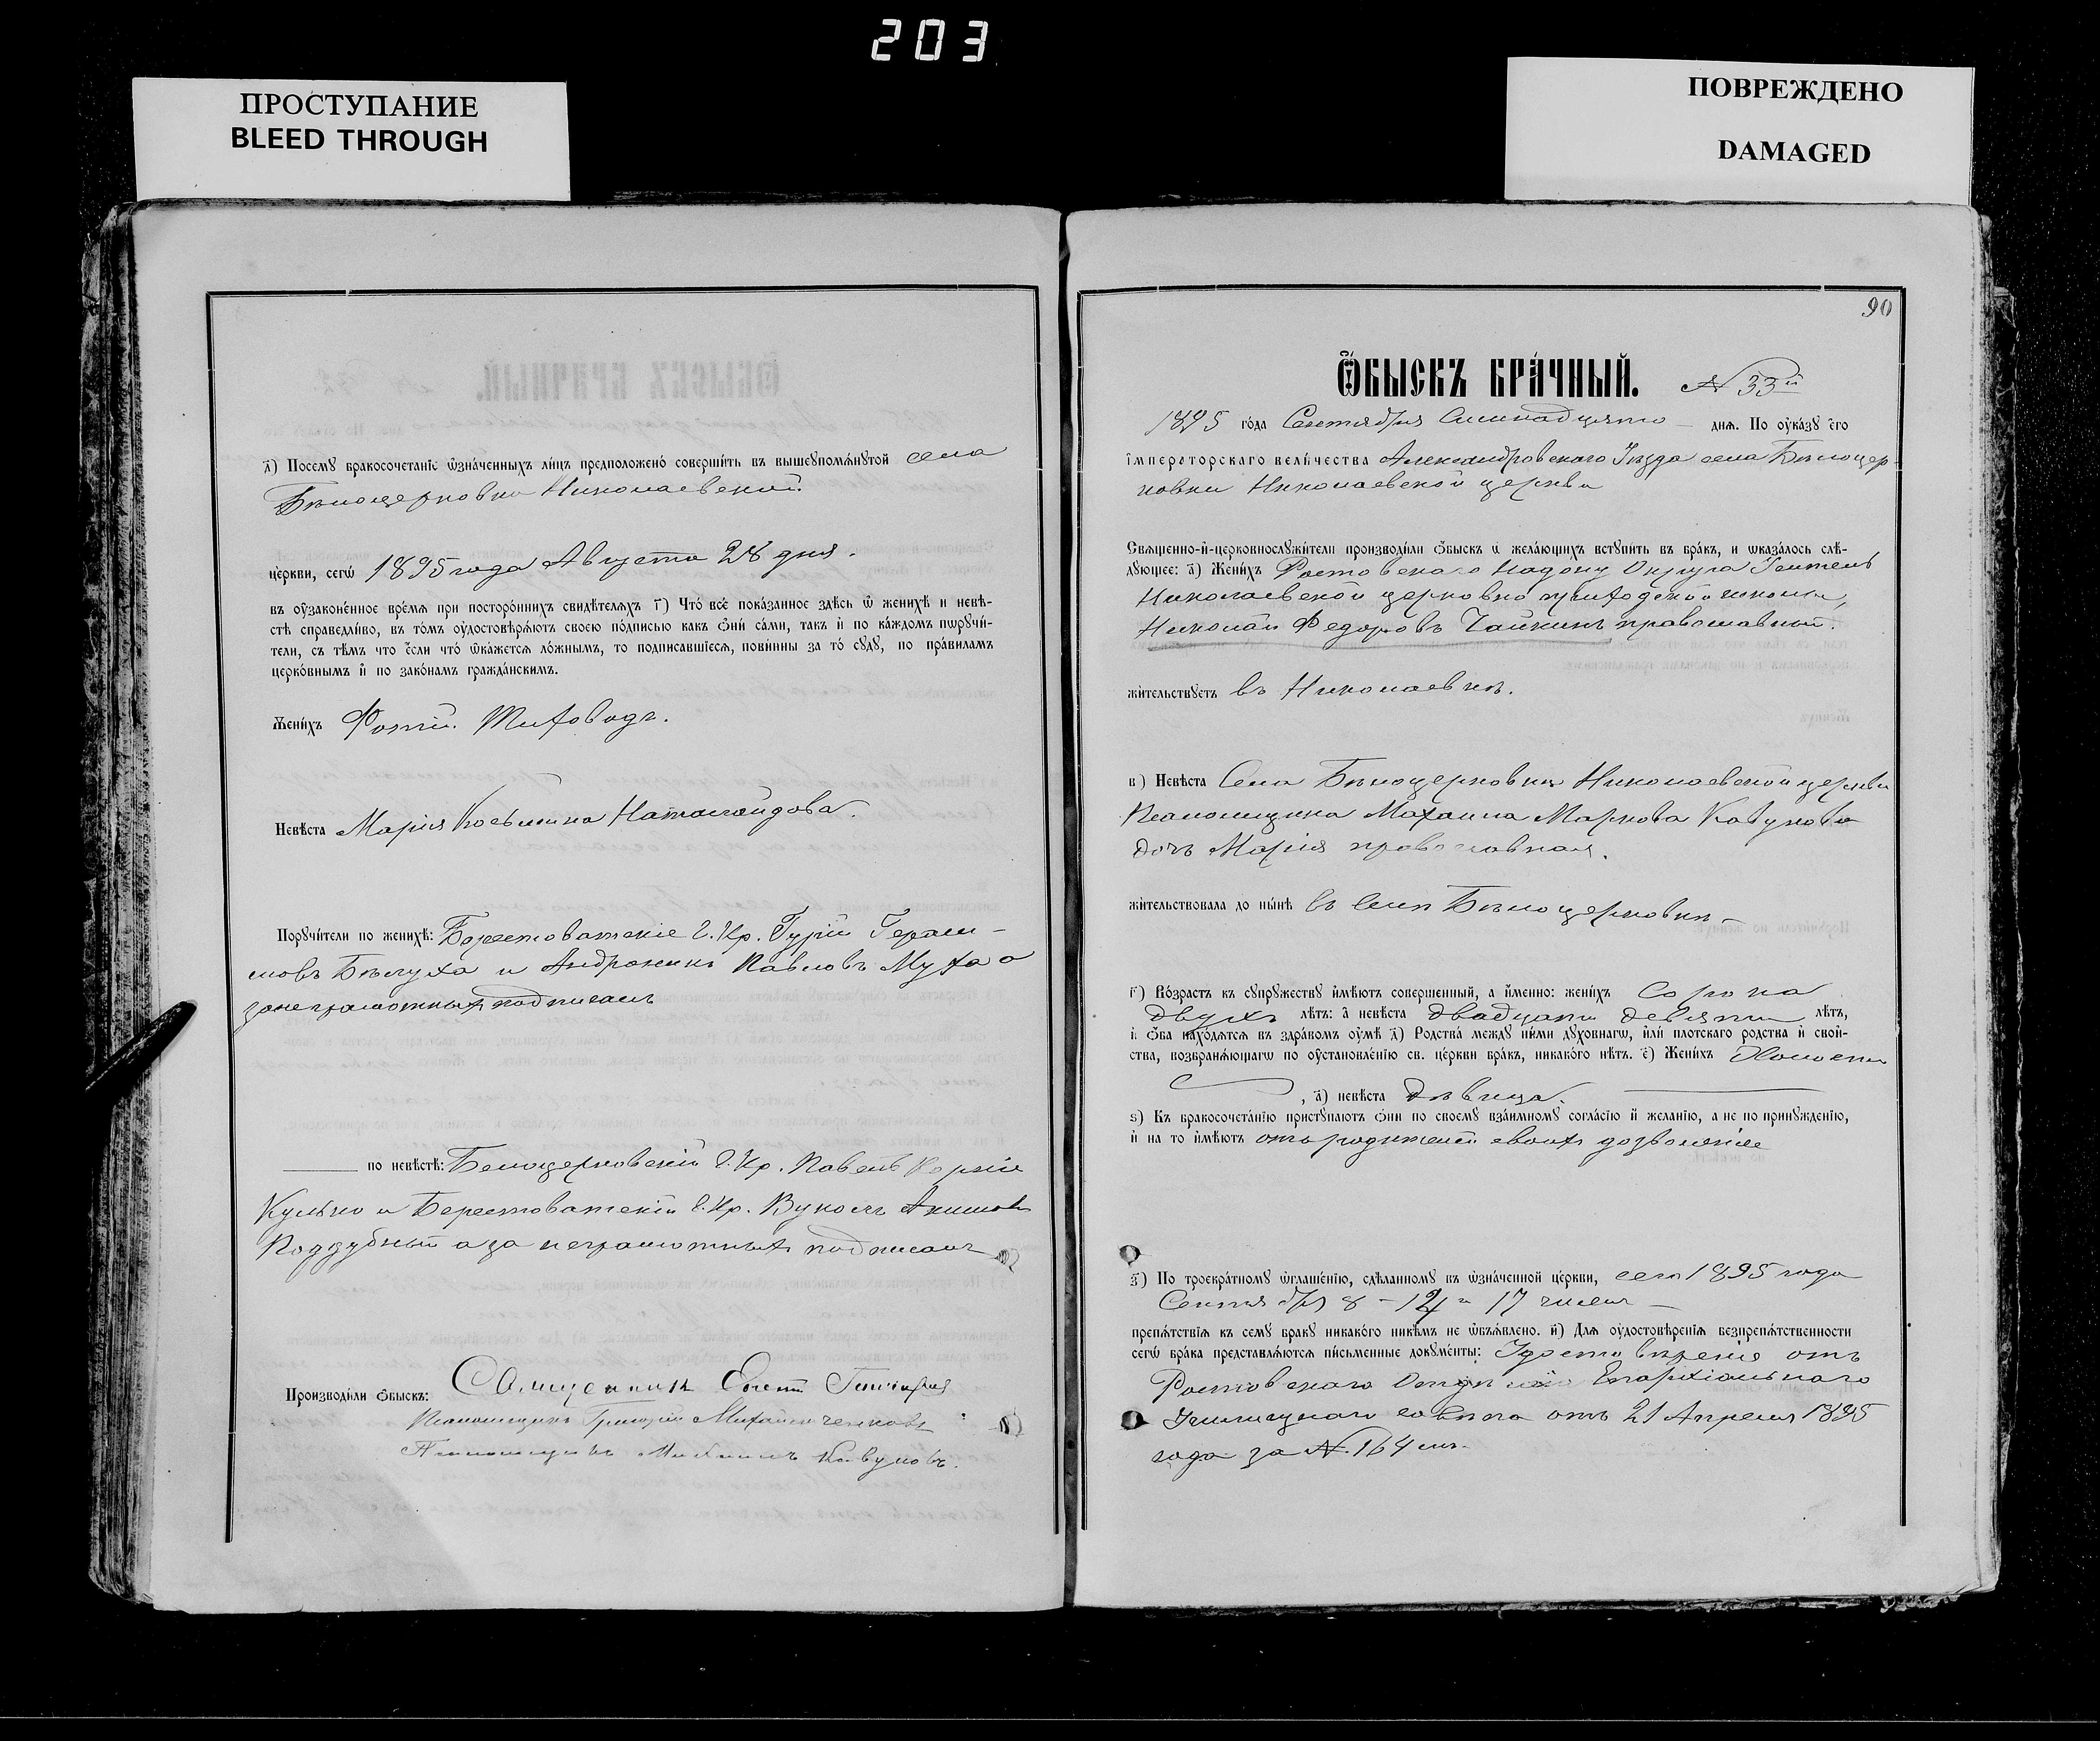 203
ПРОСТУПАНИЕ
BLEED THROUGH
ПОВРЕЖДЕНО
DAMAGED
д) Посему бракосочетаніе ѡзначенныхъ лицъ предположено совершить въ вышеупомянутой села
Бѣлоцерковки Николаевской
церкви, сегѡ 1895 года Августа 28 дня.
въ оузаконенное время при постороннихъ свидѣтеляхъ г) Что все показанное здѣсь ѡ женихѣ и невѣ-
стѣ справедливо, въ томъ оудостовѣряютъ своею подписью какъ они сами, такъ и по каждомъ поручи-
тели, съ тѣмъ что если что ѡкажется ложнымъ, то подписавшіеся, повинны за то суду, по правиламъ
церковнымъ и по законамъ гражданскимъ.
Женихъ Фотій Тиховодъ.
Невѣста Марія Косьмина
Поручители по женихѣ: Берестоватскіе Г. Кр. Гурій Гераси-
мовъ Бѣлуха и Андроникъ Павловъ Муха а
за неграмотныхъ подписалъ
по невѣстѣ: Белоцерковскій Г. Кр. Павелъ
Кулько и Берестоватскій Г. Кр. Вуколъ Акимовъ
Поддубный а за неграмотныхъ подписалъ
Производили обыскъ: Священникъ
Псаломщикъ Григорій
Псаломщикъ Михаилъ Кавуновъ.
90
Обыскъ брачный. № 33й
1895 года Сентября дня. По оуказу Его
Императорскаго величества Александровскаго Уѣзда села Бѣлоцер-
ковки Николаевской церкви
Священно-и-церковнослужители производили обыскъ ѡ желающихъ вступить въ бракъ, и ѡказалось слѣ-
дующее: а) Женихъ Ростовскаго Надону Округа Учитель
Николаевской церковно приходской школы,
Николай Федоровъ Чайкинъ православный.
жительствуетъ въ Николаевкѣ.
в) Невѣста Села Бѣлоцерковки Николаевской церкви
Псаломщика Михаила Маркова Кавунова
дочь Марія православная.
жительствовала до нынѣ въ селѣ Бѣлоцерковкѣ
г) Возрастъ къ супружеству имѣютъ совершенный, а именно: женихъ сорока
двухъ лѣтъ: а невѣста двадцати девяти лѣтъ,
и оба находятся въ здравомъ оумѣ д) Родства между ними духовнагѡ, или плотскаго родства и свой-
ства, возбраняющагѡ по оустановленію св. церкви бракъ, никакого нѣтъ. е) Женихъ холостъ
, а) невѣста дѣвица.
ѕ) Къ бракосочетанію приступаютъ они по своему взаимному согласію и желанію, а не по принужденію,
и на то имѣютъ отъ родителей своихъ дозволеніе
з) По троекратному ѡглашенію, сдѣланному въ ѡзначенной церкви, сего 1895 года
Сентября 8 - 14 и 17 чиселъ
препятствія къ сему браку никакого никѣмъ не ѡбъявлено. и) Для оудостовѣренія безпрепятственности
сегѡ брака представляются письменные документы: Удостовѣреніе отъ
Ростовскаго Епархіальнаго
Училищнаго совѣта отъ 21 Апрѣля 1895
года за № 164